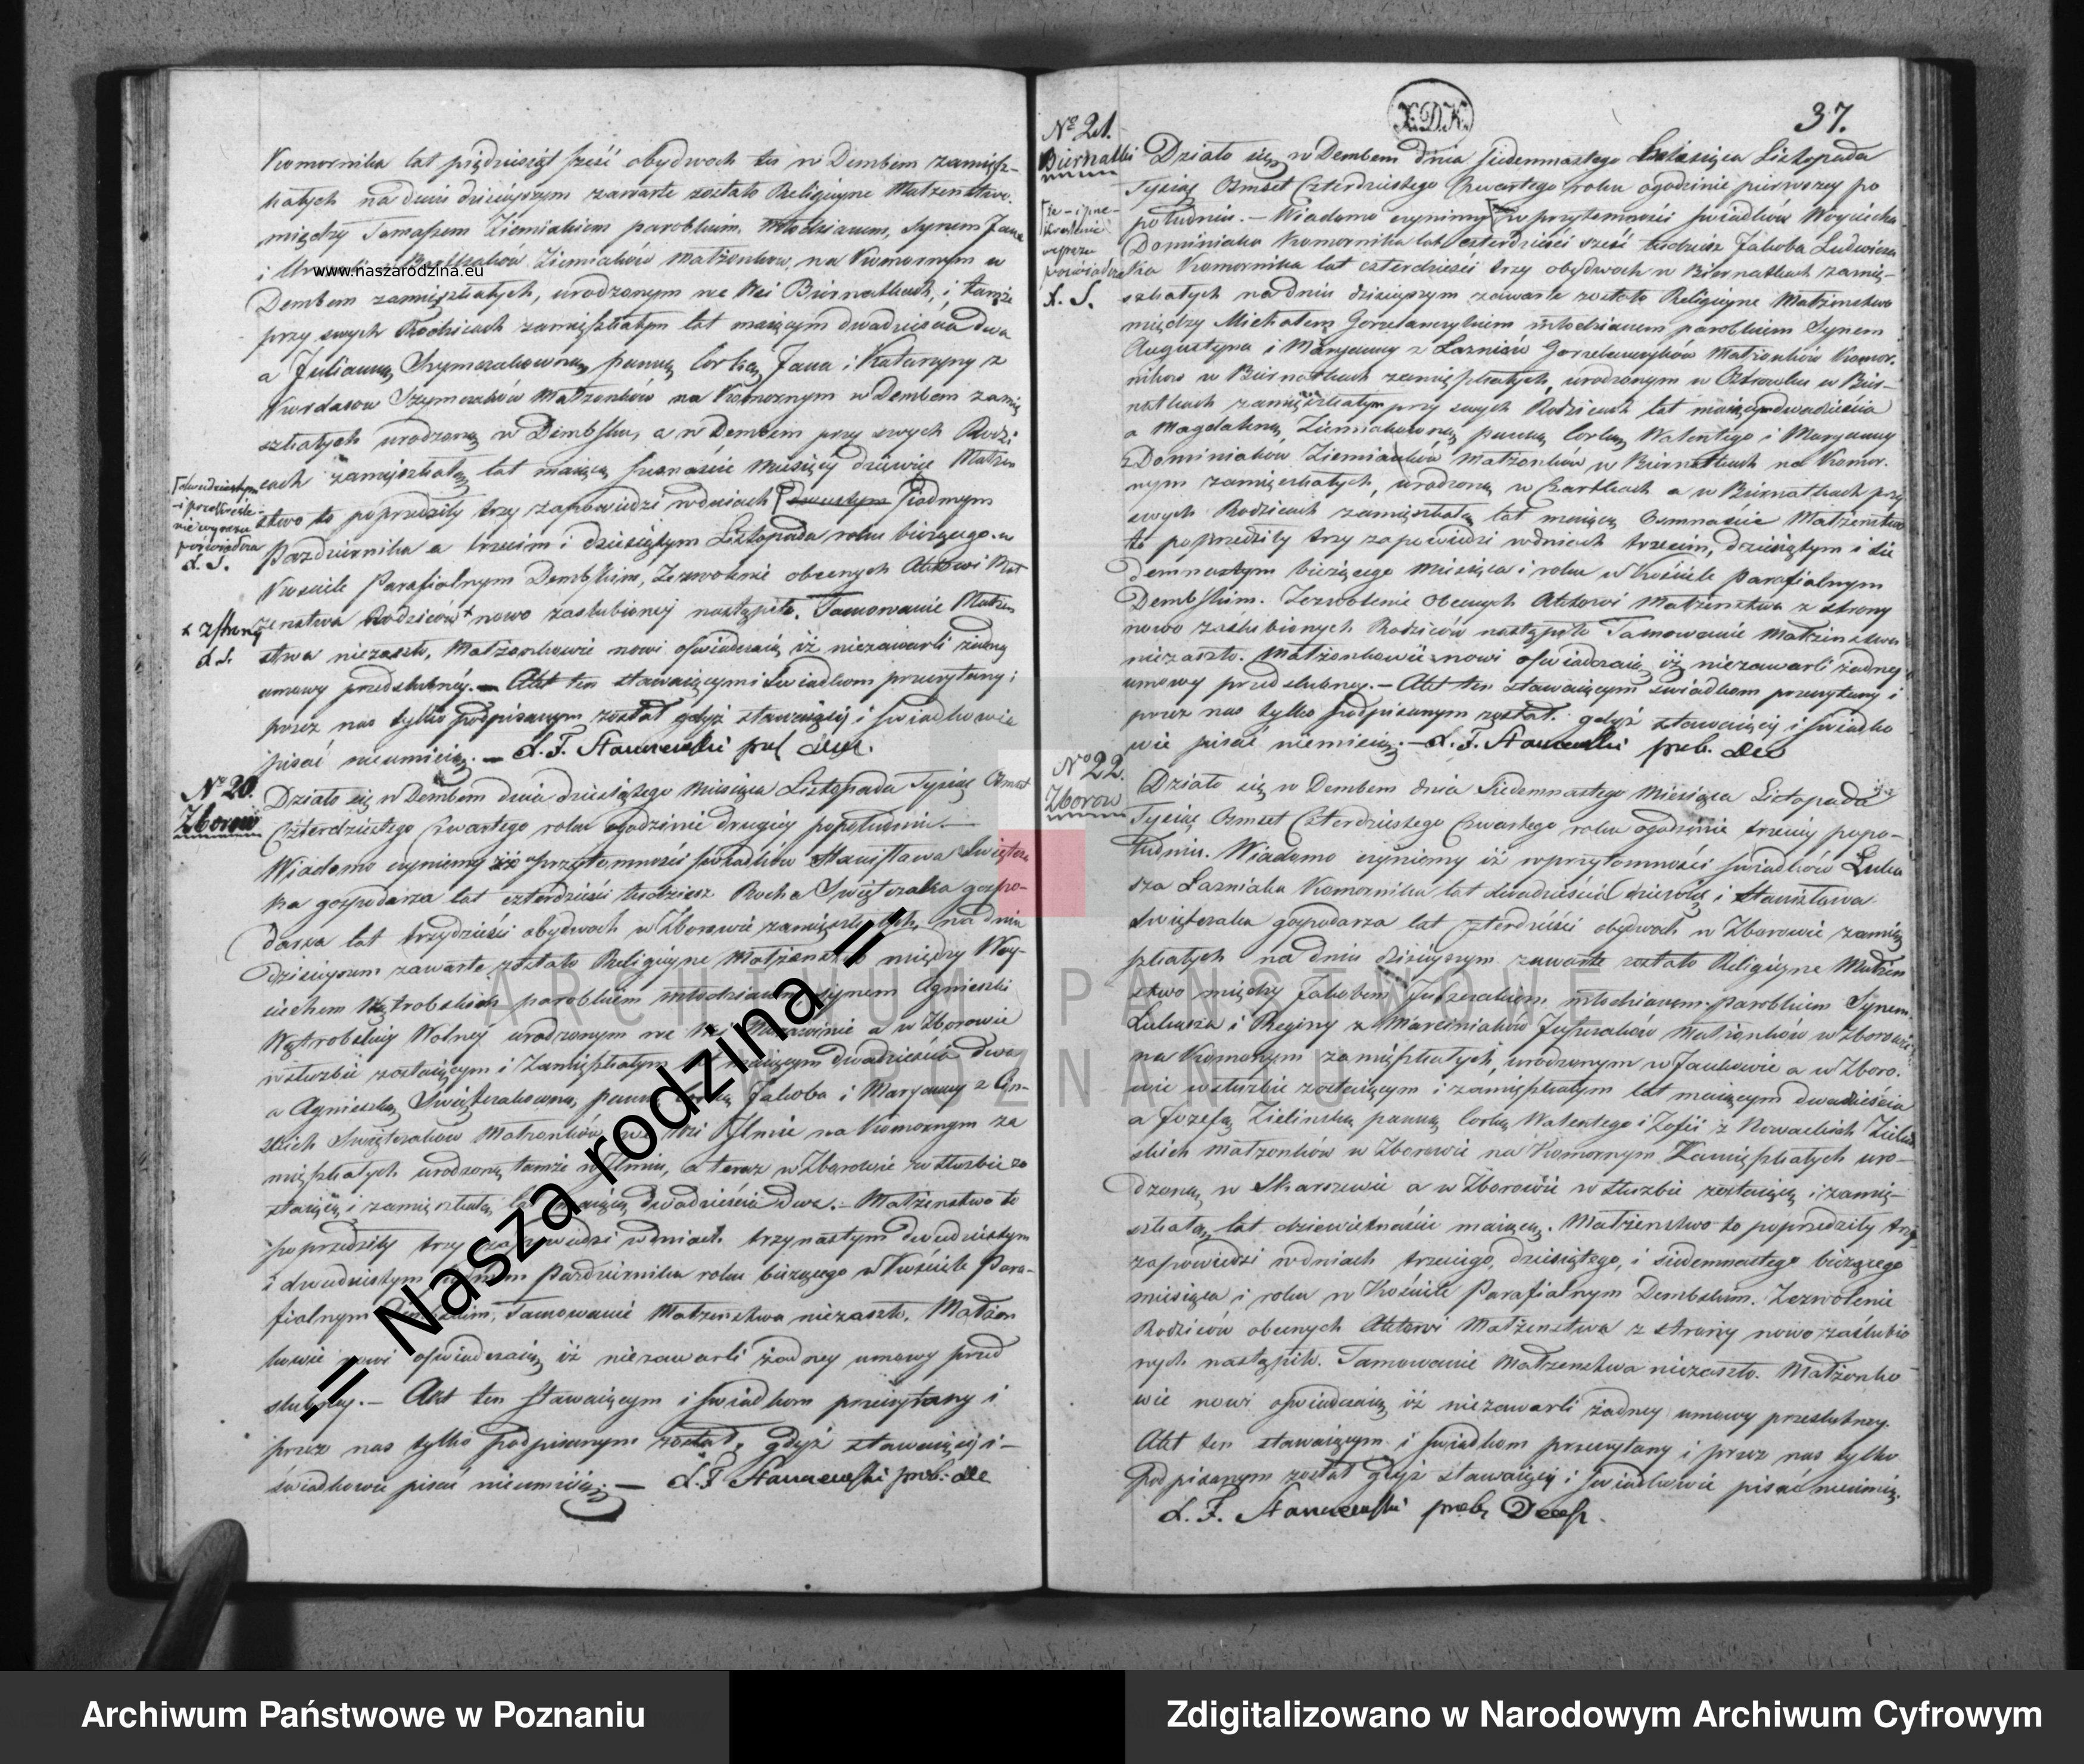 Komornika lat piędziesiąt sześć obydwoch tu w Dembem zamięsz-
kałych na dniu dzisieyszym zawarte zostało Religijne Małżeństwo
między Tomaszem Ziemiakiem parobkiem młodzianem, synem Jana
i Ziemiaków Małżonków, na Komornym w
www.naszarodzina.eu
Dembem zamięszkałych, urodzonym we Wsi Biernatkach, i tamże
przy swych Rodzicach zamięszkałym lat maiącym dwadzieścia dwa
a Julianną Szymczakowną panną Corką Jana i Katarzyny z
Szymczaków Małżonków na Komornym w Dembem zamię
szkałych urodzoną w Dembsku, a w Dembem przy swych Rodzi
cach zamięszkałą lat maiącą szesnaście Miesięcy dziewięć Małżeń
stwo to poprzedziły trzy zapowiedzi w dniach siódmym
Października a trzecim i dziesiątym Listopada roku bieżącego w
Kosciele Parafialnym Dembskim, Zezwolenie obecnych Aktowi Mał
żenstwa Rodziców + nowo zaślubioney nastąpiło. Tamowanie Małżeń
stwa niezaszło, Małżonkowie nowi oświadczaią iż niezawarli żadney
umowy przedślubney. — Akt ten stawaiącym i Swiadkom przeczytany i
przez nas tylko podpisanym został gdyż stawaiący i Swiadkowie
pisać nieumieią. —
[dwudziestym
i przekreśle-
nie wyrazu
poświadcza
x z strony
No 20.
Zborow
Działo się w Dembem dnia dziesiątego Miesiąca Listopada Tysiąc Osmset
Czterdziestego Czwartego roku ogodzinie drugiey popołudniu. —
Wiadomo czyniemy iż w przytomności świadków Stanisława Swiętcza
ka gospodarza lat czterdzieści tudzież Rocha Swiętczaka gospo-
darza lat trzydzieści obydwoch w Zborowie zamięszkałych, na dniu
dzisieyszem zawarte zostało Religijne Małżeństwo między Woy-
ciechem Wątrobskim parobkiem młodzianem, synem Agnieszki
Wątrobskiey Wolney urodzonym we Wsi a w Zborowie
w służbie zostaiącym i Zamięszkałym lat maiącym dwadzieścia dwa
a Agnieszką Swiętczakowną, panną Corką Jakoba i Maryanny z
Swiętczaków Małżonków we Wsi na Komornym za
mięszkałych urodzoną tamże a teraz w Zborowie w służbie zo
staiącą i zamięszkałą lat maiącą dwadzieścia dwa. — Małżeństwo to
poprzedziły trzy zapowiedzi w dniach trzynastym dwudziestym
i dwudziestym Października roku bieżącego w Kościele Para-
fialnym Dembskim, Tamowanie Małżeństwa niezaszło. Małżon
kowie nowi oświadczaią iż niezawarli żadney umowy przed
slubney. — Akt ten stawaiącym i świadkom przeczytany i
przez nas tylko podpisanym został, gdyż stawaiący i —
świadkowie pisać nieumieią. —
X.D.K.
37.
No 21.
Biernatki
Działo się w Dembem dnia siedemnastego Miesiąca Listopada
Tysiąc Osmset Czterdziestego Czwartego roku ogodzinie pierwszey po
południu. — Wiadomo czynimy w przytomności świadków Woyciecha
Dominiaka Komornika lat czterdzieści sześć tudzież Jakoba Ludwicza
ka Komornika lat czterdzieści trzy obydwoch w Biernatkach zamię-
szkałych na dniu dzisieyszym zawarte zostało Religijne Małżeństwo
między Michałem Gorzelanczykiem młodzianem parobkiem Synem
Augustyna i Maryanny z Lazniaków Gorzelanczyków Małżonków Komor-
ników w Biernatkach zamięszkałych, urodzonym w a w Bier-
natkach zamięszkałym przy swych Rodzicach lat maiącym dwadzieścia
a Magdaleną Ziemiakowną panną Corką Walentego i Maryanny
z Dominiaków Ziemiaków Małżonków w Biernatkach na Komor-
nym zamięszkałych, urodzoną w Czartkach a w Biernatkach przy
swych Rodzicach zamięszkałą lat maiącą Osmnaście Małżeństwo
to poprzedziły trzy zapowiedzi w dniach trzecim, dziesiątym i sie
demnastym bieżącego Miesiąca i roku w Kościele parafialnym
Dembskim. Zezwolenie Obecnych Aktowi Małżeństwa z strony
nowo zaślubionych Rodziców nastąpiło Tamowanie Małżeństwa
niezaszło. Małżonkowie nowi oświadczaią iż niezawarli żadney
umowy przedslubney. — Akt ten stawaiącym świadkom przeczytany i
przez nas tylko podpisanym został. gdyż stawaiący i Swiadko
wie pisać nieumieią. —
No 22.
Zborow
Działo się w Dembem dnia Siedemnastego Miesiąca Listopada
Tysiąc Osmset Czterdziestego Czwartego roku ogodzinie trzeciey popo-
łudniu. Wiadomo czyniemy iż w przytomności świadków Łuka
sza Lazniaka Komornika lat dwadzieścia dziewięć i Stanisława
Swiętczaka gospodarza lat czterdzieści obydwoch w Zborowie zamię
szkałych na dniu dzisieyszym zawarte zostało Religijne Małżeń
stwo między Jakobem młodzianem parobkiem Synem
Łukasza i Reginy z Małżonków w Zborowie
na Komornym zamięszkałych, urodzonym w Jankowie a w Zboro-
wie w służbie zostaiącym i zamięszkałym lat maiącym dwadzieścia
a Jozefą Zielinską panną Corką Walentego i Zofii z Nowackich Zieliń
skich małżonków w Zborowie na Komornym Zamięszkałych uro-
dzoną w Skarszewie a w Zborowie w służbie zostaiącą i zamię-
szkałą, lat dziewietnaście maiącą. Małżeństwo to poprzedziły trzy
zapowiedzi w dniach trzeciego, dziesiątego, i siedemnastego bieżącego
miesiąca i roku w Kościele Parafialnym Dembskim. Zezwolenie
Rodziców obecnych Aktowi Małżeństwa z strony nowo zaślubio
nych nastąpiło. Tamowanie Małżeństwa niezaszło. Małżonko
wie nowi oświadczaią iż niezawarli żadney umowy przeslubney.
Akt ten stawaiącym i świadkom przeczytany i przez nas tylko
Podpisanym został gdyż stawaiący i świadkowie pisać nieumieią.
= Nasza rodzina =
ARCHIWUM PAŃSTWOWE
W POZNANIU
Archiwum Państwowe w Poznaniu
Zdigitalizowano w Narodowym Archiwum Cyfrowym